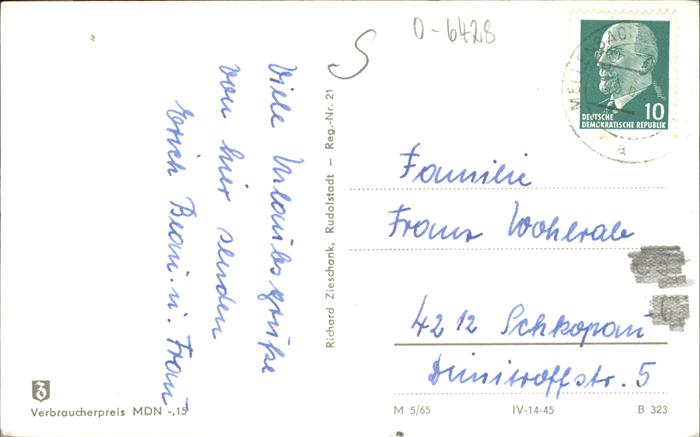 D-6428
S
Viele Urlaubsgrüße
von hier senden
Erich Brau. u. Frau
Richard Zieschank, Rudolstadt — Reg.-Nr. 21
10
DEUTSCHE
DEMOKRATISCHE REPUBLIK
a
Familie
Franz Wohlrab
4212 Schkopau
Dimitroffstr. 5
Verbraucherpreis MDN -,15
M 5/65 IV-14-45 B 323